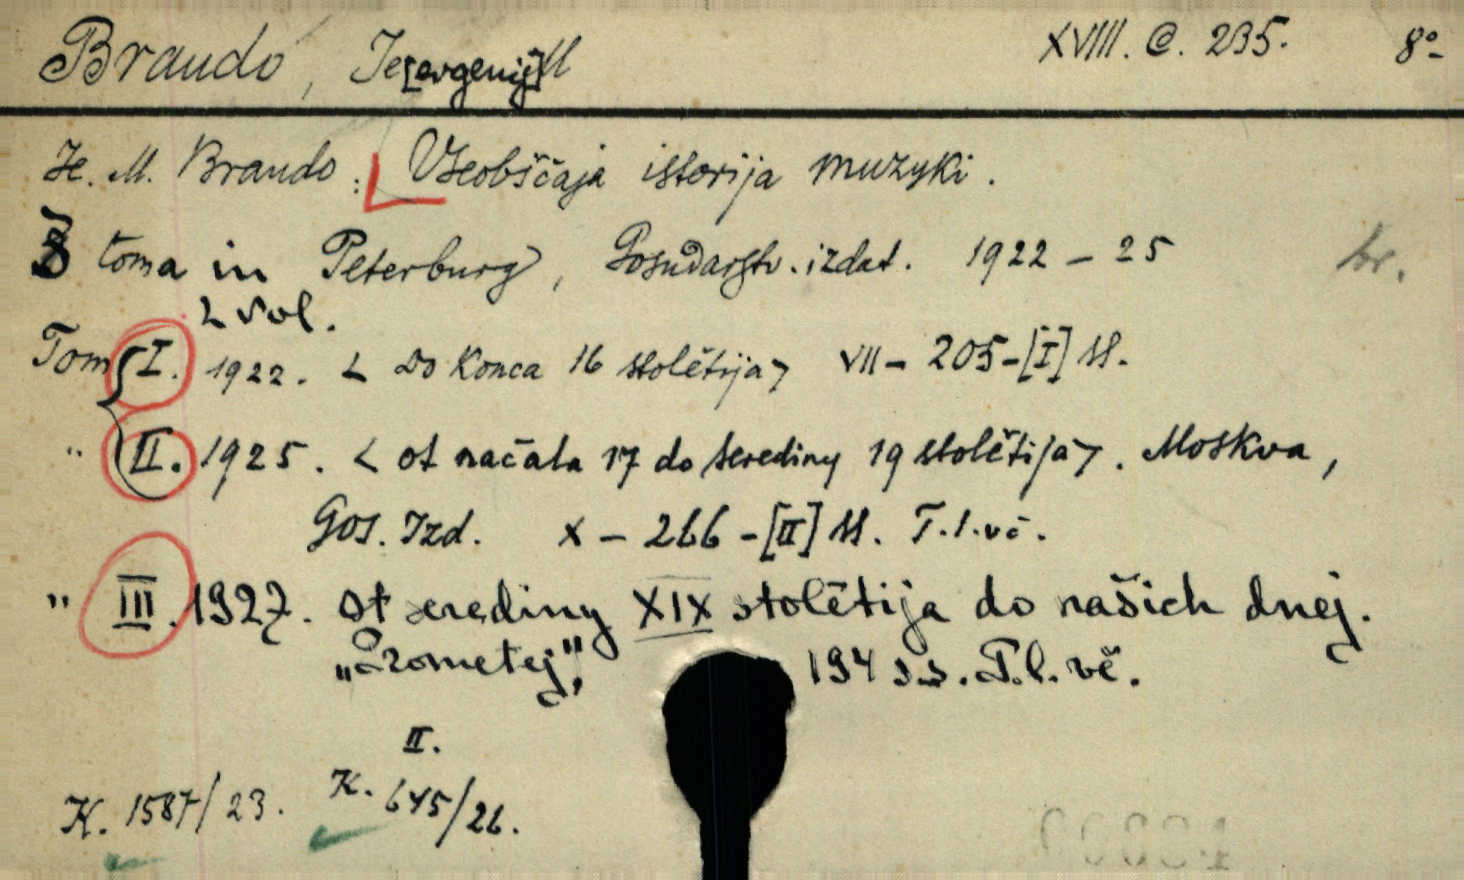 Braudo, Je[evgenij] M XVIII. C. 235. 8°
Je. M. Braudo: Vseobščaja istorija muzyki.
3 toma in Peterburg, Gosudarstv. izdat. 1922 – 25 br.
2 vol.
Tom I. 1922. < Do konca 16 stolětija > VII – 205 – [I] ss.
" II. 1925. < ot načala 17 do serediny 19 stolětija >. Moskva,
Gos. Izd. X – 266 – [II] ss. T. l. vč.
" III. 1927. Ot serediny XIX stolētija do našich dnej.
194 ss. T. l. vč.
II.
K. 1587/23. K. 645/26.